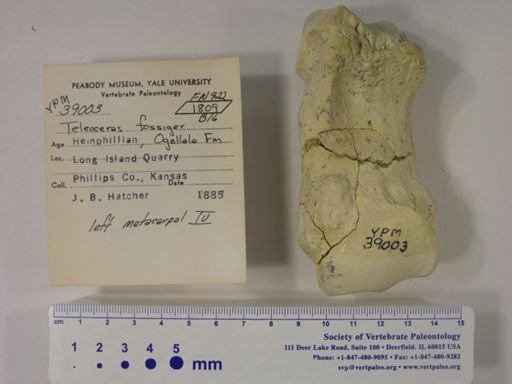 PEABODY MUSEUM, YALE UNIVERSITY
Vertebrate Paleontology
YPM
39003
FN 927
1809
B16
Teleoceras fossiger
Age Hemphillian, Ogallala Fm
Loc. Long Island Quarry
Phillips Co., Kansas
Coll. Date
J. B. Hatcher 1885
left metacarpal IV
YPM
39003
cm 1 2 3 4 5 6 7 8 9 10 11 12 13 14 15
1 2 3 4 5 mm
Society of Vertebrate Paleontology
111 Deer Lake Road, Suite 100 • Deerfield, IL 60015 USA
Phone: +1-847-480-9095 • Fax: +1-847-480-9282
svp@vertpaleo.org • www.vertpaleo.org